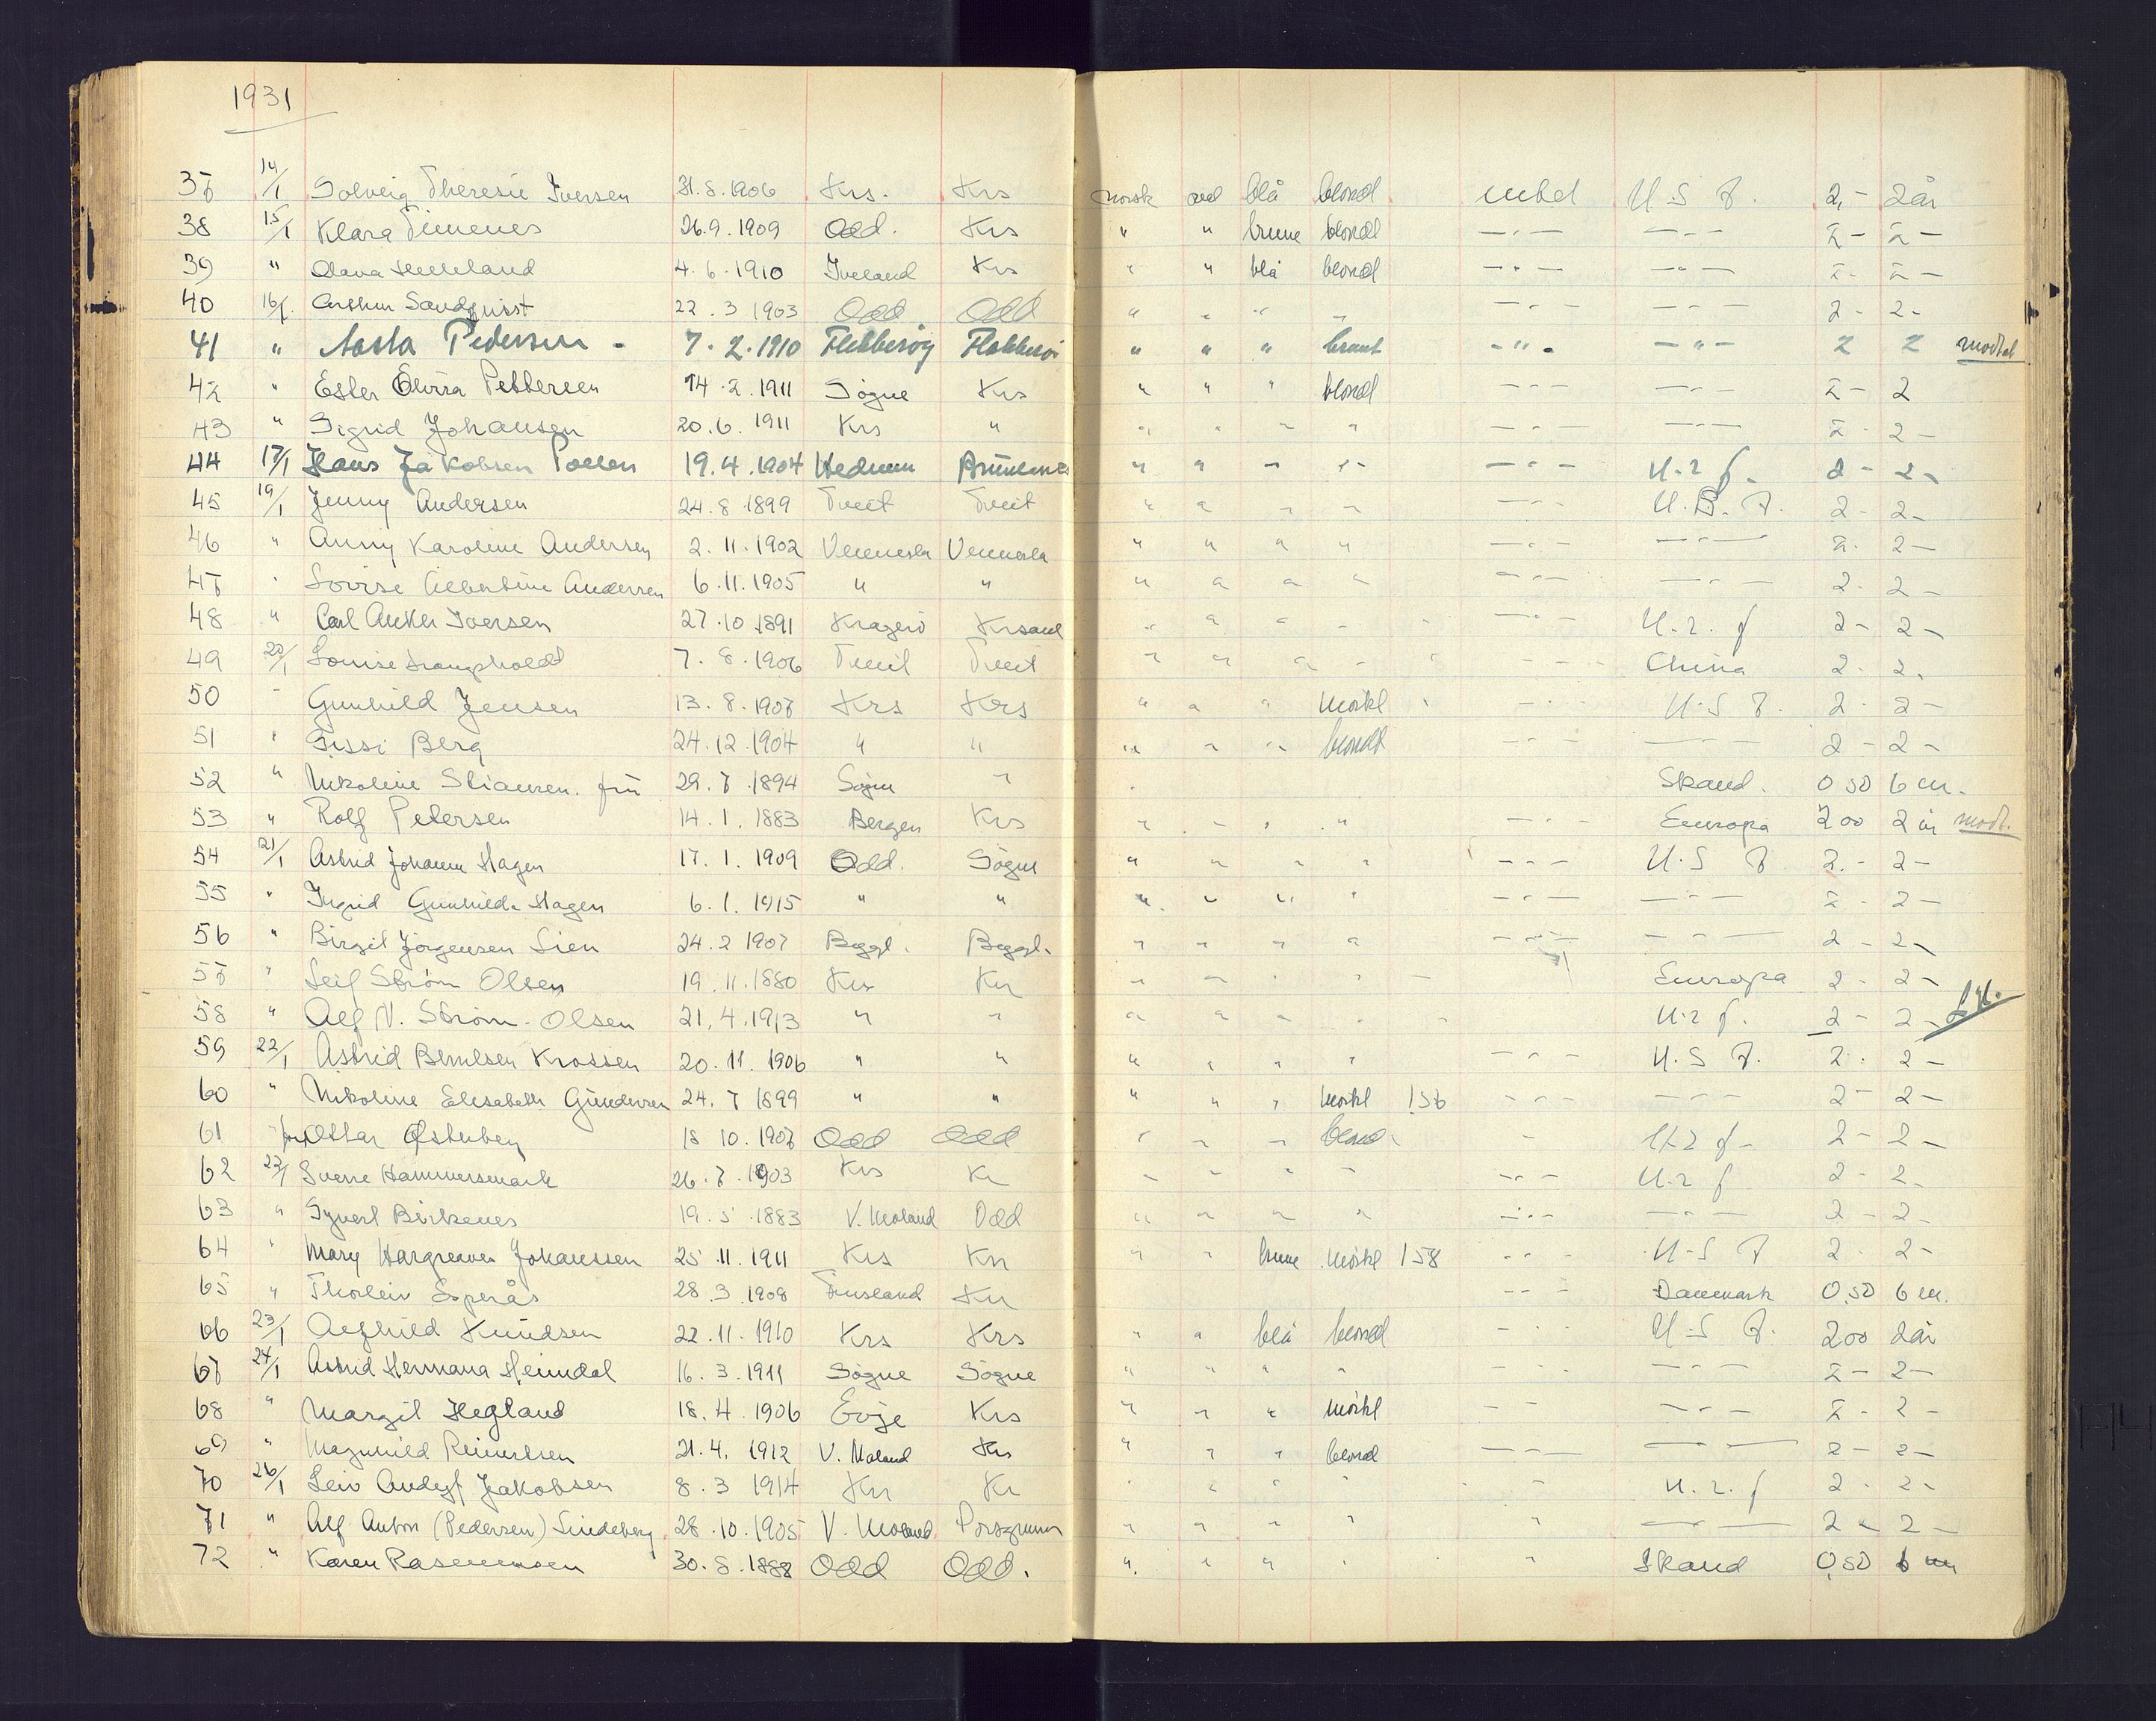 1931
37 14/1 Solveig Theresie Iversen 31.8.1906 Krs. Krs norsk oval blå blond ubed U.S.A. 2,- 2 år
38 15/1 Klara Timenes 26.9.1909 Odd. Krs " " brune blond — " — — " — 2 - 2 -
39 " Olava 4.6.1910 Iveland Krs " " blå blond — " — — " — 2 - 2 -
40 16/1 Arthur Sandquist 22.3 1903 Odd Odd " " " " — " — — " — 2 - 2 -
41 " Aasta Pedersen - 7.2.1910 Flekkerøy Flekkerøi " " " brunt - " - — " — 2 2 modtat
42 " Ester Elvira Pettersen 14.2.1911 Søgne Krs " " " blond — " — — " — 2 - 2
43 " Sigrid Johansen 20.6.1911 Krs " " " " " — " — — " — 2 - 2 -
44 17/1 Hans Jakobsen Poulen 19.4.1904 Hedrum " " " " — " — U.r f. 2 - 2 -
45 19/1 Jenny Andersen 24.8 1899 Tveit Tveit " " " " — " — U.S.A. 2 - 2 -
46 " Anny Karoline Andersen 2.11.1902 Vennesla Vennesla " " " " — " — — " — 2 - 2 -
47 " Lovise Albertine Andersen 6.11.1905 " " " " " " — " — — " — 2 - 2 -
48 " Carl Anker Iversen 27.10.1891 Kragerø Krsand " " " " — " — U.r.f 2 - 2 -
49 20/1 Louise 7.8.1906 Tveit Tveit " " " " — " — China 2 - 2.
50 " Gunhild Jensen 13.8.1907 Krs Krs " " " mørkt — " — U.S A. 2 - 2 -
51 " Sissi Berg 24.12.1904 " " " " " blondt — " — — " — 2 - 2 -
52 " Nikoline Stiansen. fru 29.7.1894 Søgne " Skand. 0 50 6 m.
53 " Rolf Petersen 14.1.1883 Bergen Krs " " " " — " — Europa 2 00 2 år modt.
54 21/1 Astrid Johanne Hagen 17.1.1909 Odd. Søgne " " " " — " — U.S A 2.- 2 -
55 " Ingrid Gunhilda Hagen 6.1.1915 " " " " " " — " — — " — 2 - 2 -
56 " Birgit Jørgensen Lien 24.2 1907 Byggl. Byggl. " " " " — " — — " — 2 - 2 -
57 " Leif Strøm Olsen 19.11.1880 Krs Kr " " " " Europa 2 - 2 -
58 " Alf N. Strøm-Olsen 21.4.1913 " " " " " " U.r f. 2 - 2 -
59 22/1 Astrid Berntsen Krossen 20.11.1906 " " " " " " — " — U.S A. 2 - 2 -
60 " Nikoline Elisabeth Gundersen 24.7 1899 " " " " " mørkt 156 — " — — " — 2 - 2 -
61 " Ottar Østerberg 18 10.1907 Odd Odd " " " blond " U.r f - 2 - 2 -
62 22/1 Sverre Hammersmark 26.7.1903 Krs Kr " " " " — " — U.r f 2 - 2 -
63 " Syvert Birkenes 19.5.1883 V. Moland Odd " " " " — " — — " — 2 - 2 -
64 " Mary Hargreaves Johanssen 25.11.1911 Krs Kr " " brune mørkt 158 — " — U.S A 2 - 2 -
65 " Thorleiv Esperås 28.3.1908 Finsland Kr — " — Danmark 0,50 6 m.
66 23/1 Alfhild Knudsen 22.11.1910 Krs Krs " " blå blond — " — U.S A. 2 00 2 år
67 24/1 Astrid Hermana Heimdal 16.3.1911 Søgne Søgne " " " " — " — — " — 2 - 2 -
68 " Margit Hegland 18.4.1906 Evje Krs " " " mørkt — " — — " — 2 - 2 -
69 " Magnhild Reiersen 21.4.1912 V. Moland Krs " " " blond — " — — " — 2 - 2 -
70 26/1 Leiv Jakobsen 8.3 1914 Kr Kr " " " " " U.r.f 2 - 2 -
71 " Alf Anton (Pedersen) Lindeberg 28.10.1905 V. Moland Porsgrunn " " " " " — " — 2 - 2 -
72 " Karen Rasmussen 30.8.1888 Odd Odd. " " " " " Skand 0,50 6 m